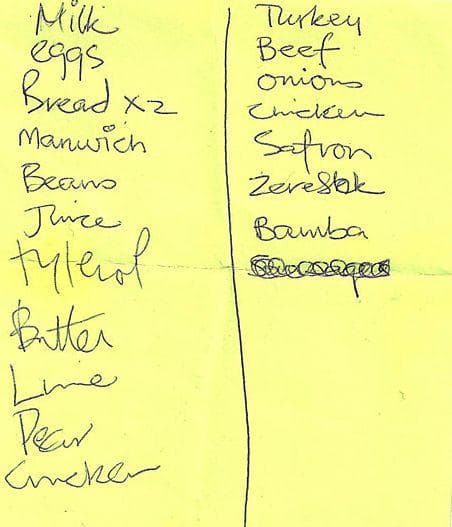 Milk
eggs
Bread x2
Manwich
Beans
Juice
tylenol
Butter
Lime
Pear
Chicken
Turkey
Beef
onions
Chicken
Safron
Zereshk
Bamba